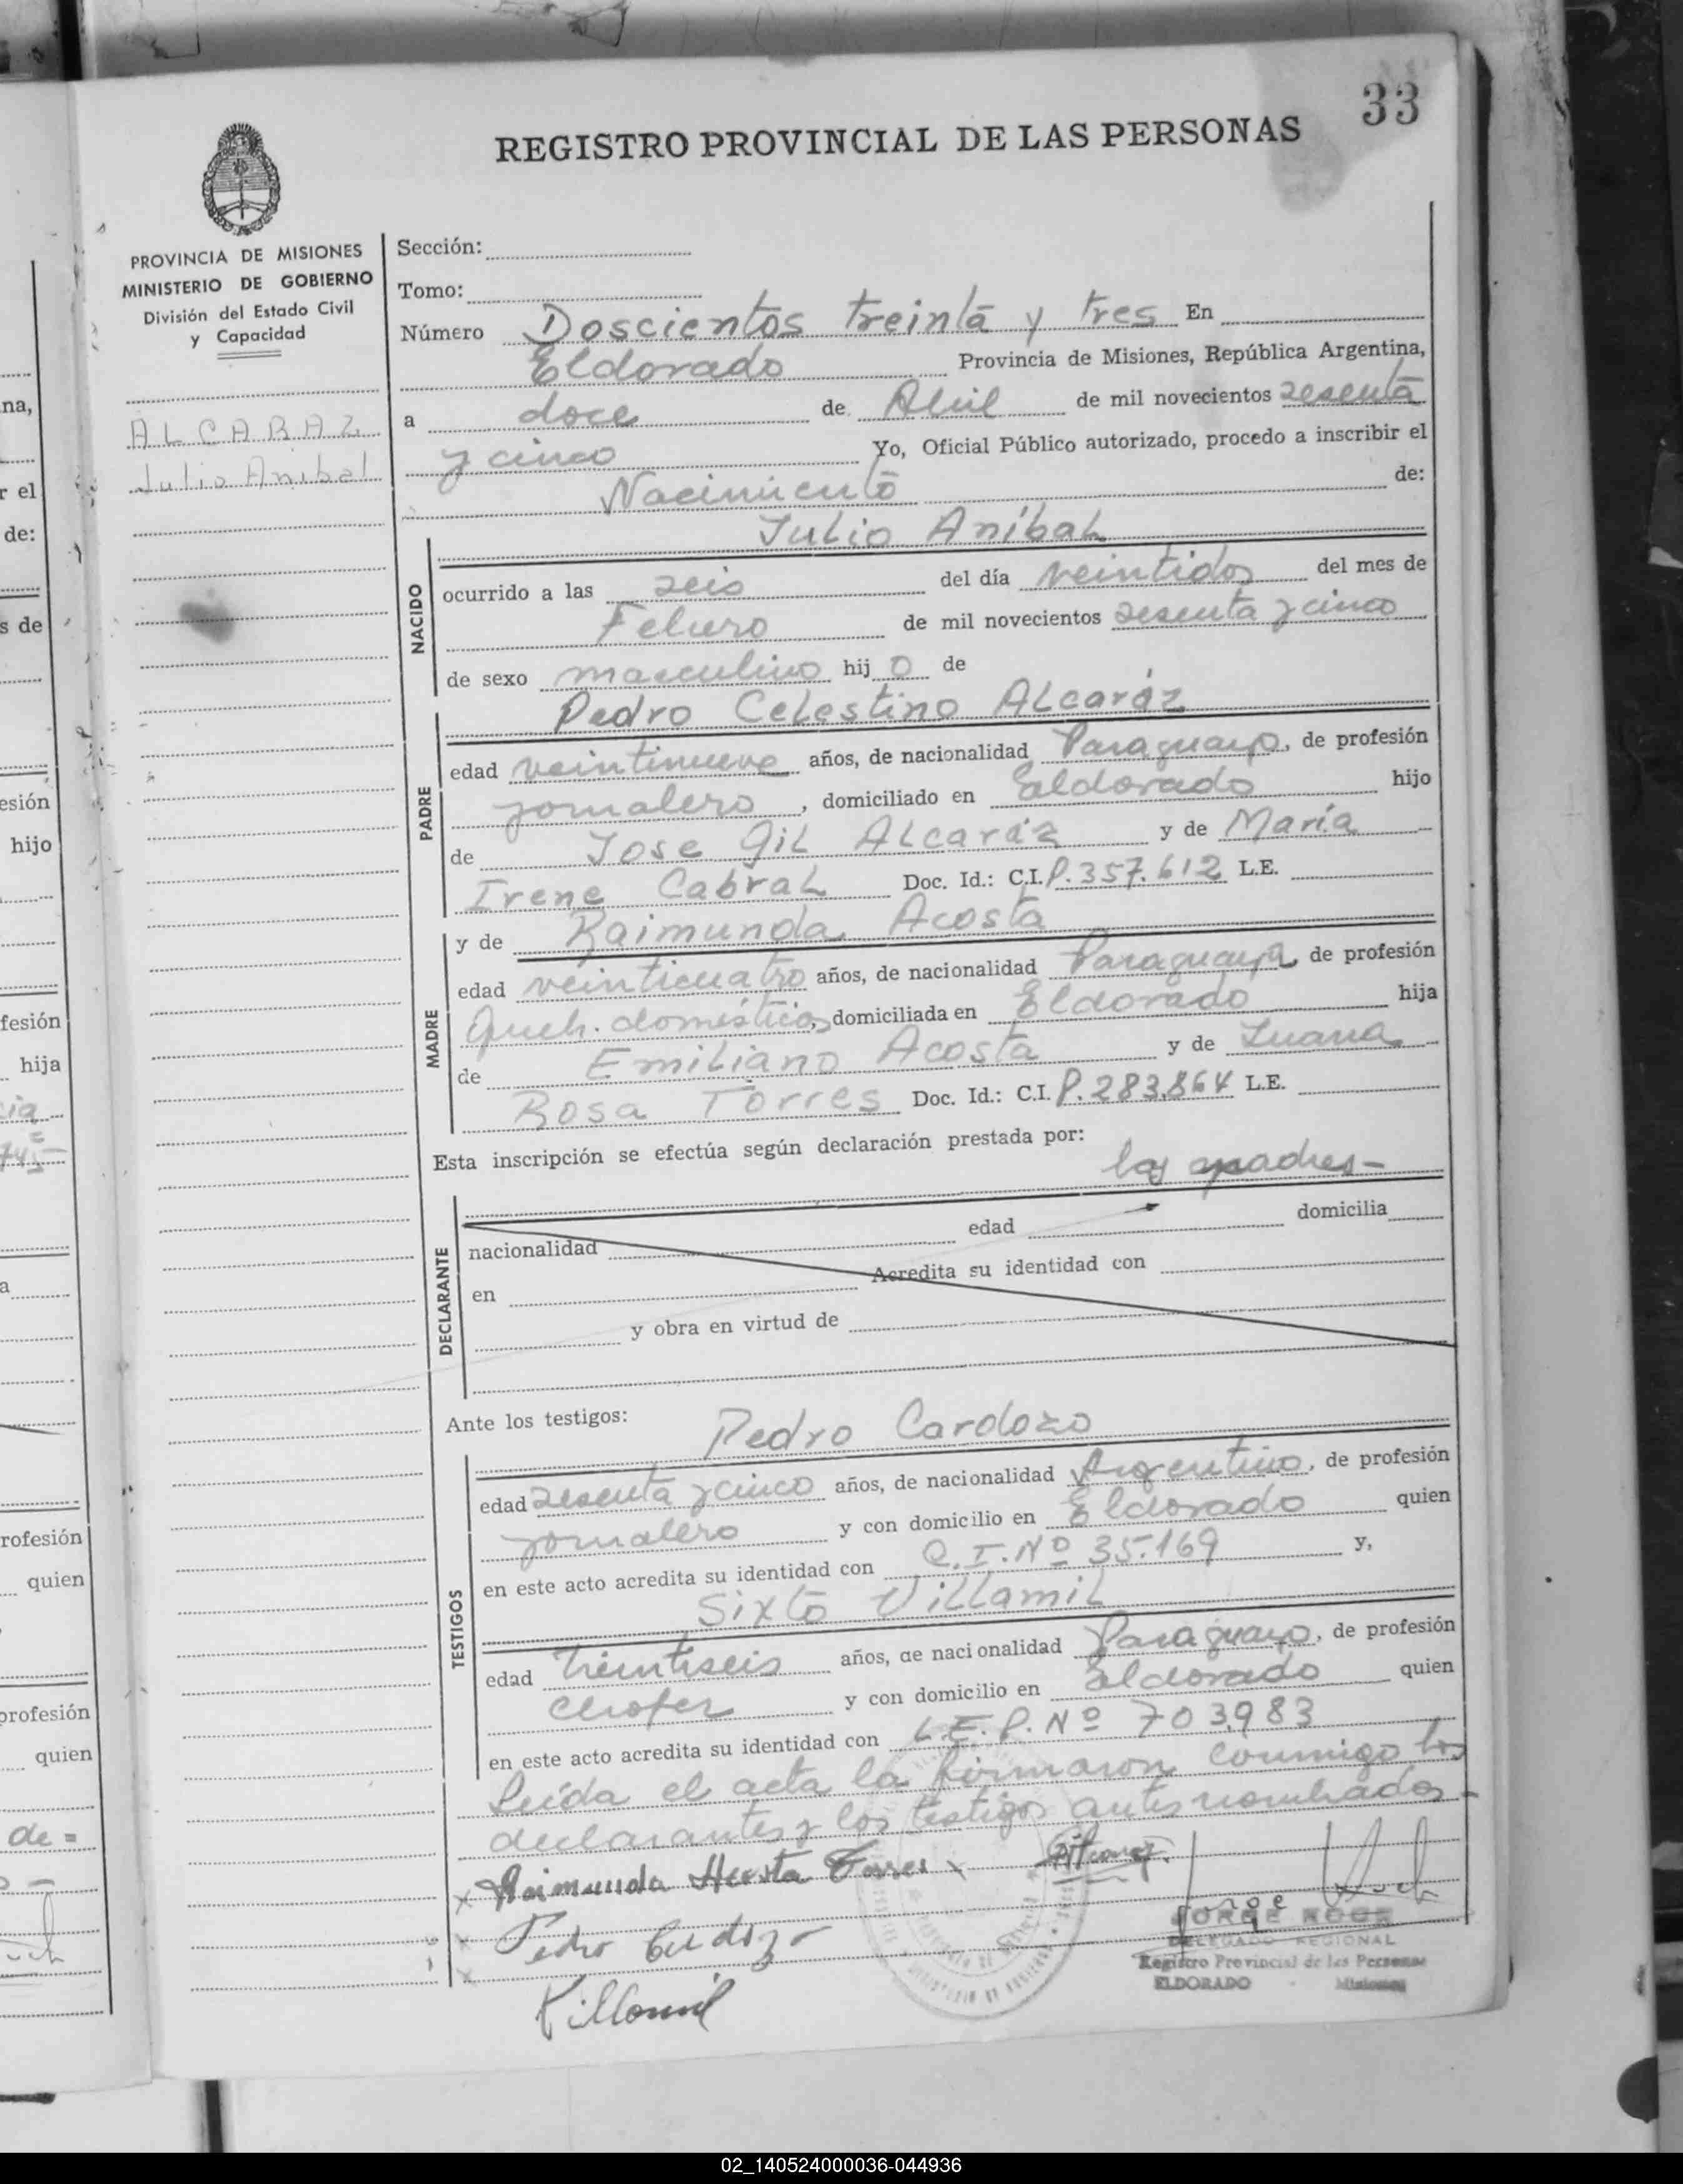 33
REGISTRO PROVINCIAL DE LAS PERSONAS
PROVINCIA DE MISIONES
MINISTERIO DE GOBIERNO
División del Estado Civil
y Capacidad
ALCARAZ
Julio Anibal
Sección:
Tomo:
Número Doscientos treinta y tres En
Eldorado Provincia de Misiones, República Argentina,
a doce de Abril de mil novecientos sesenta
y cinco Yo, Oficial Público autorizado, procedo a inscribir el
Nacimiento de:
Julio Aníbal
NACIDO
ocurrido a las seis del día veintidos del mes de
Febrero de mil novecientos sesenta y cinco
de sexo masculino hij o de
Pedro Celestino Alcaráz
PADRE
edad veintinueve años, de nacionalidad Paraguayo, de profesión
jornalero, domiciliado en Eldorado hijo
de Jose Gil Alcaráz y de María
Irene Cabral Doc. Id.: C.I. P.357.612 L.E.
y de Raimunda Acosta
MADRE
edad veinticuatro años, de nacionalidad Paraguaya, de profesión
Queh. domésticos, domiciliada en Eldorado hija
de Emiliano Acosta y de Juana
Rosa Torres Doc. Id.: C.I. P.283.864 L.E.
Esta inscripción se efectúa según declaración prestada por:
los padres-
DECLARANTE
edad domicilia
nacionalidad
en Acredita su identidad con
y obra en virtud de
Ante los testigos: Pedro Cardozo
TESTIGOS
edad sesenta y cinco años, de nacionalidad Argentino, de profesión
jornalero y con domicilio en Eldorado quien
en este acto acredita su identidad con C.I. Nº 35.169 y,
Sixto Villamil
edad treintiseis años, de nacionalidad Paraguayo, de profesión
chofer y con domicilio en Eldorado quien
en este acto acredita su identidad con L.E.P. Nº 703983
Leída el acta la firmaron conmigo los
declarantes y los testigos antes nombrados-
x Raimunda Acosta Torres x
x Pedro Cardozo
x Villamil
JORGE
DELEGADO REGIONAL
Registro Provincial de las Personas
ELDORADO - Misiones
na,
r el
de:
s de
esión
hijo
fesión
hija
cia
a
rofesión
quien
profesión
quien
de =
02_140524000036-044936